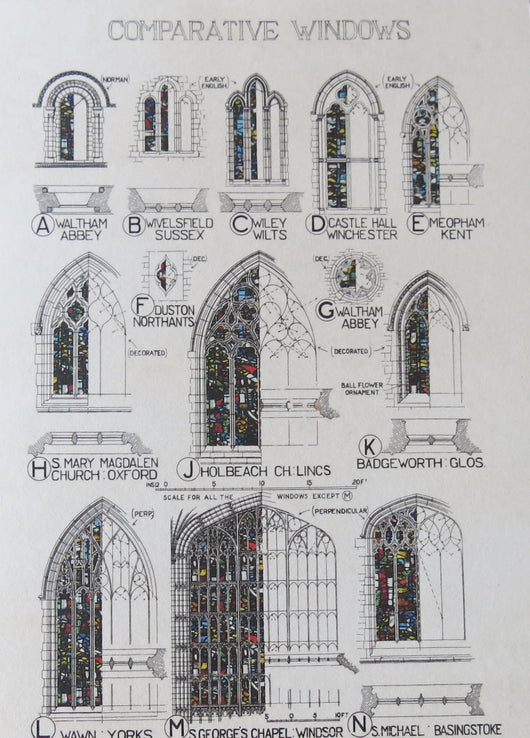 COMPARATIVE WINDOWS
(NORMAN)
EARLY ENGLISH
(EARLY ENGLISH)
A WALTHAM ABBEY
B WIVELSFIELD SUSSEX
C WILEY WILTS
D CASTLE HALL WINCHESTER
E MEOPHAM KENT
DEC.
DEC.
F DUSTON NORTHANTS
G WALTHAM ABBEY
(DECORATED)
(DECORATED)
BALL FLOWER ORNAMENT
H S. MARY MAGDALEN CHURCH : OXFORD
J HOLBEACH CH: LINCS
K BADGEWORTH : GLOS.
INS 0 5 10 15 20 FT
SCALE FOR ALL THE WINDOWS EXCEPT M
(PERP)
(PERPENDICULAR)
0 5 10 FT
L WAWN : YORKS
M S. GEORGE'S CHAPEL : WINDSOR
N S. MICHAEL : BASINGSTOKE